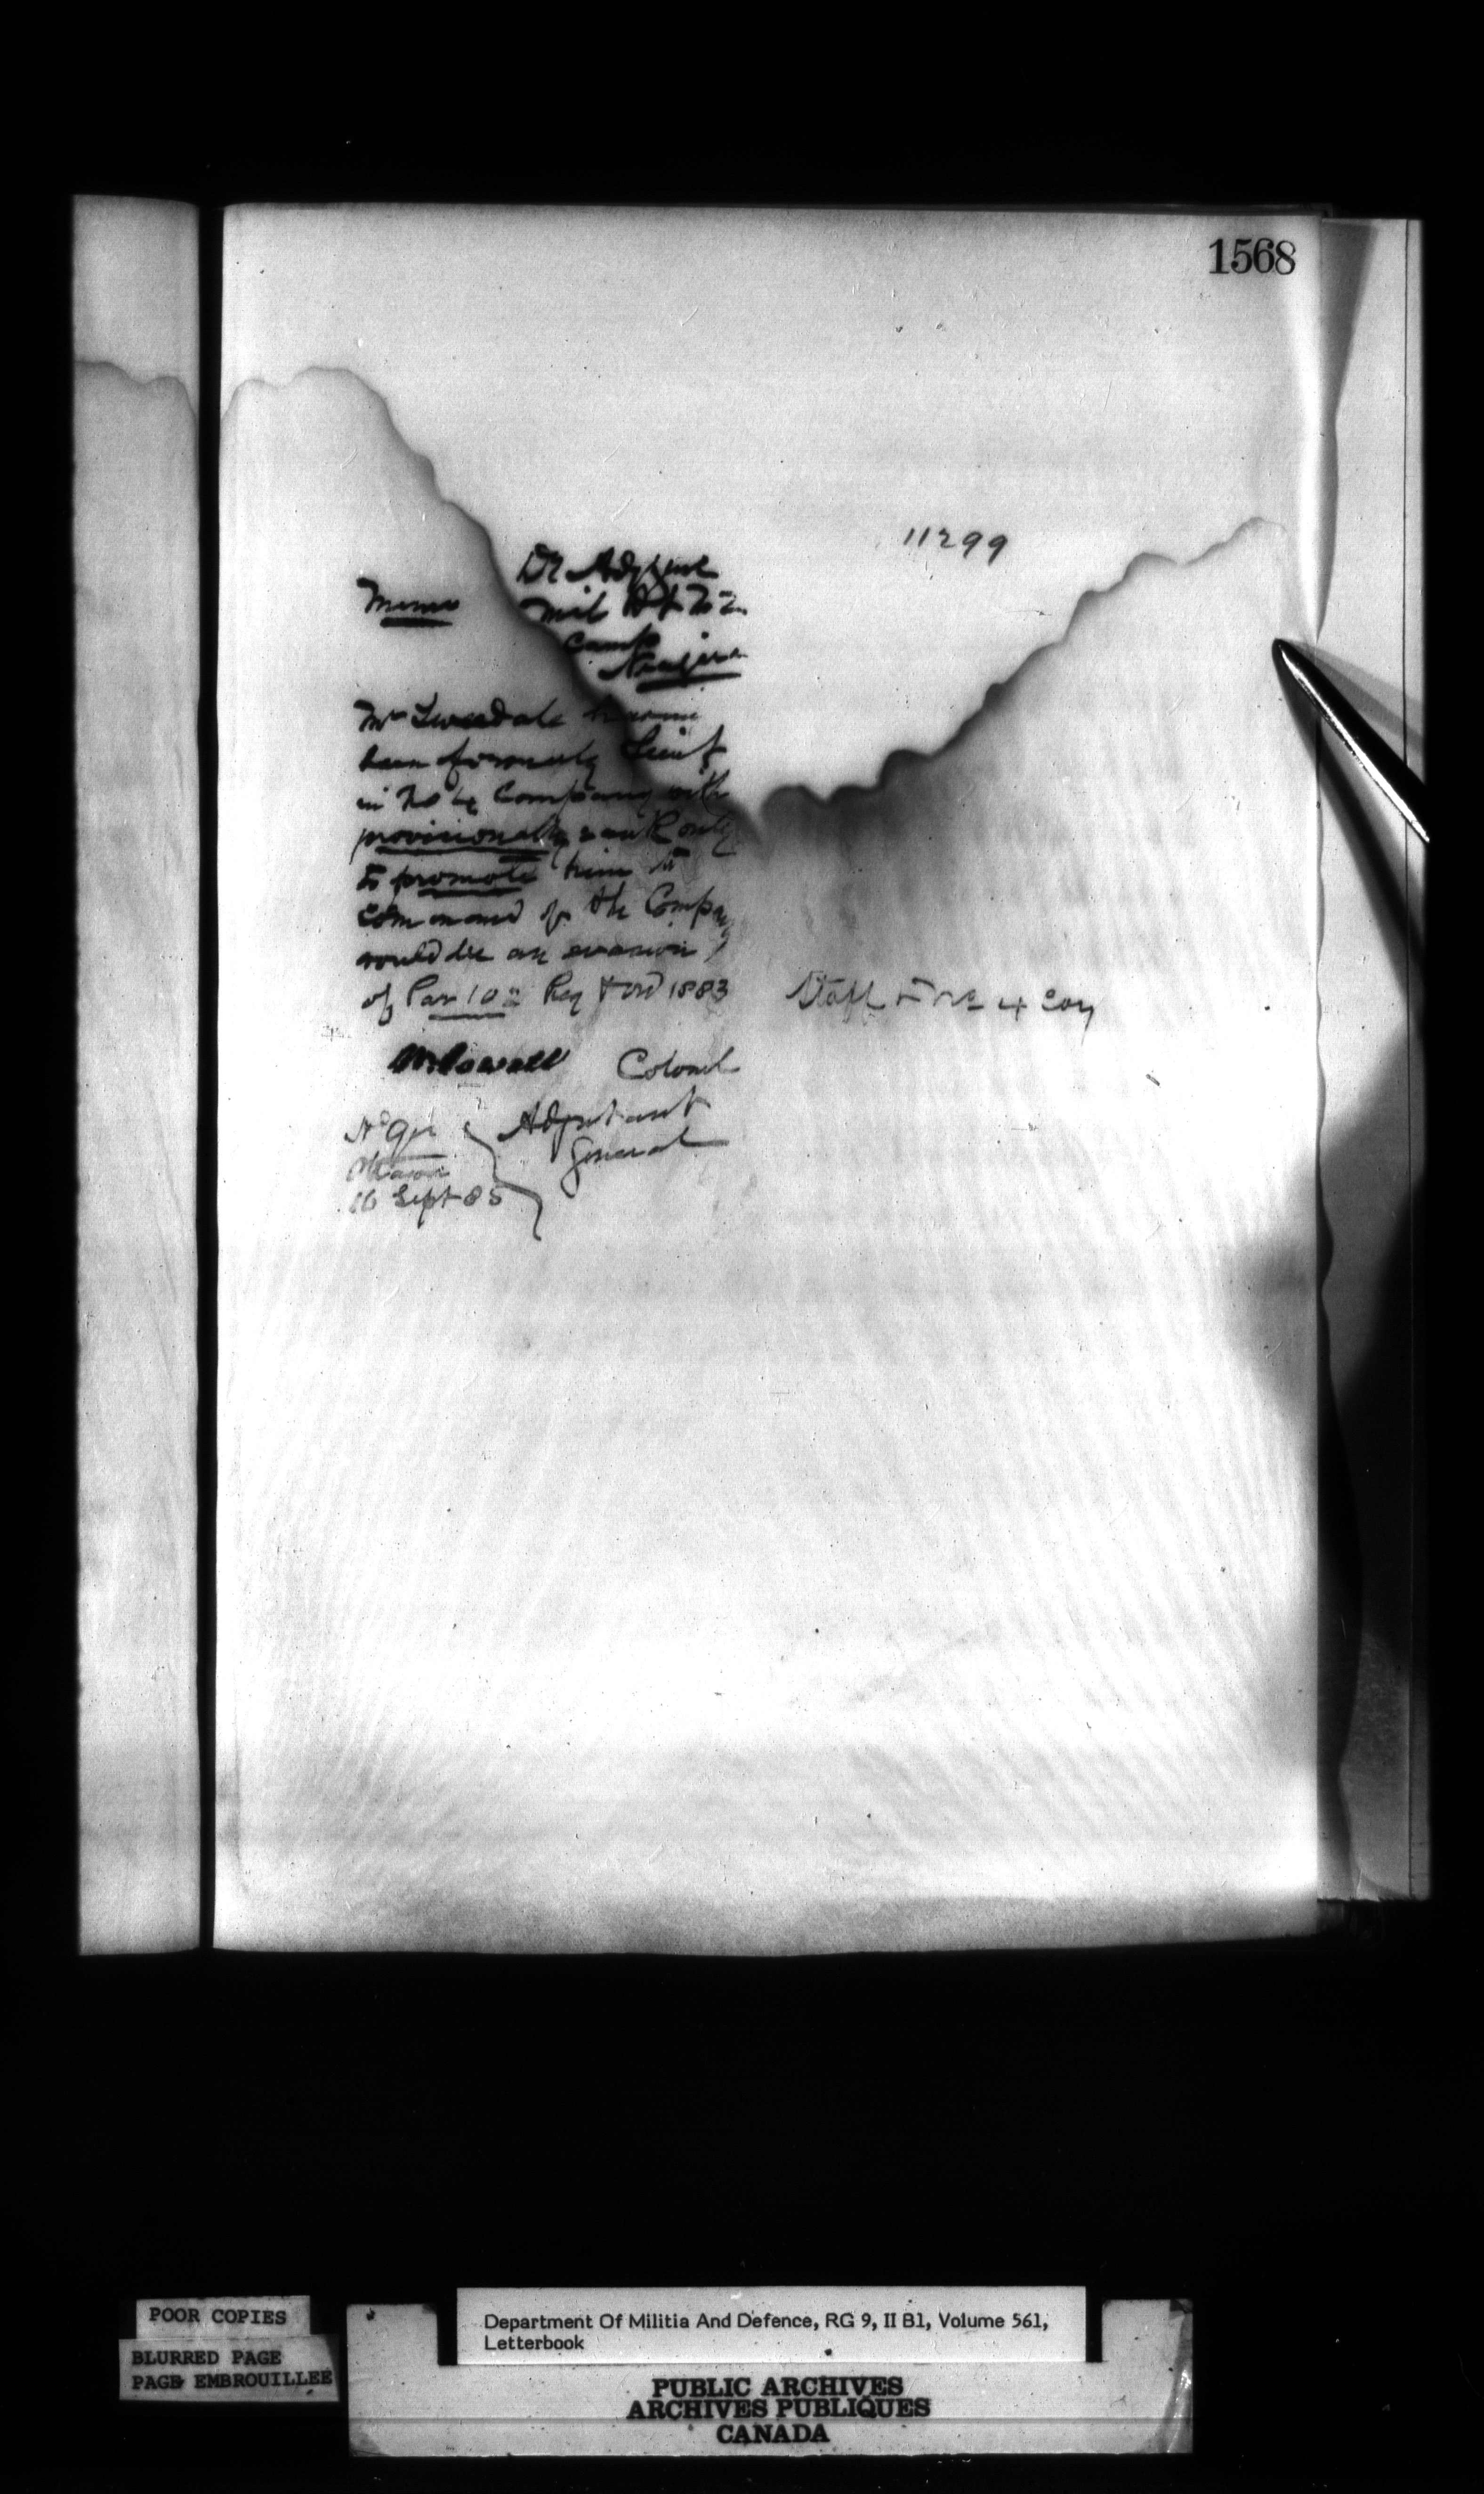 1568
11299
Memo
Dy Adjt Genl
Mil Dt No 2
Camp
Niagara
Mr Tweedale
been formerly Lieut
in No 4 Company with
provisionally rank only
to promote him to
Command of the Company
would be an evasion
of Par 102 Reg & Ord 1883
Staff No 4 Coy
W Powell Colonel
Hd Qrs
Adjutant
General
Ottawa
16 Sept 85
POOR COPIES
BLURRED PAGE
PAGE EMBROUILLEE
Department Of Militia And Defence, RG 9, II B1, Volume 561,
Letterbook
PUBLIC ARCHIVES
ARCHIVES PUBLIQUES
CANADA